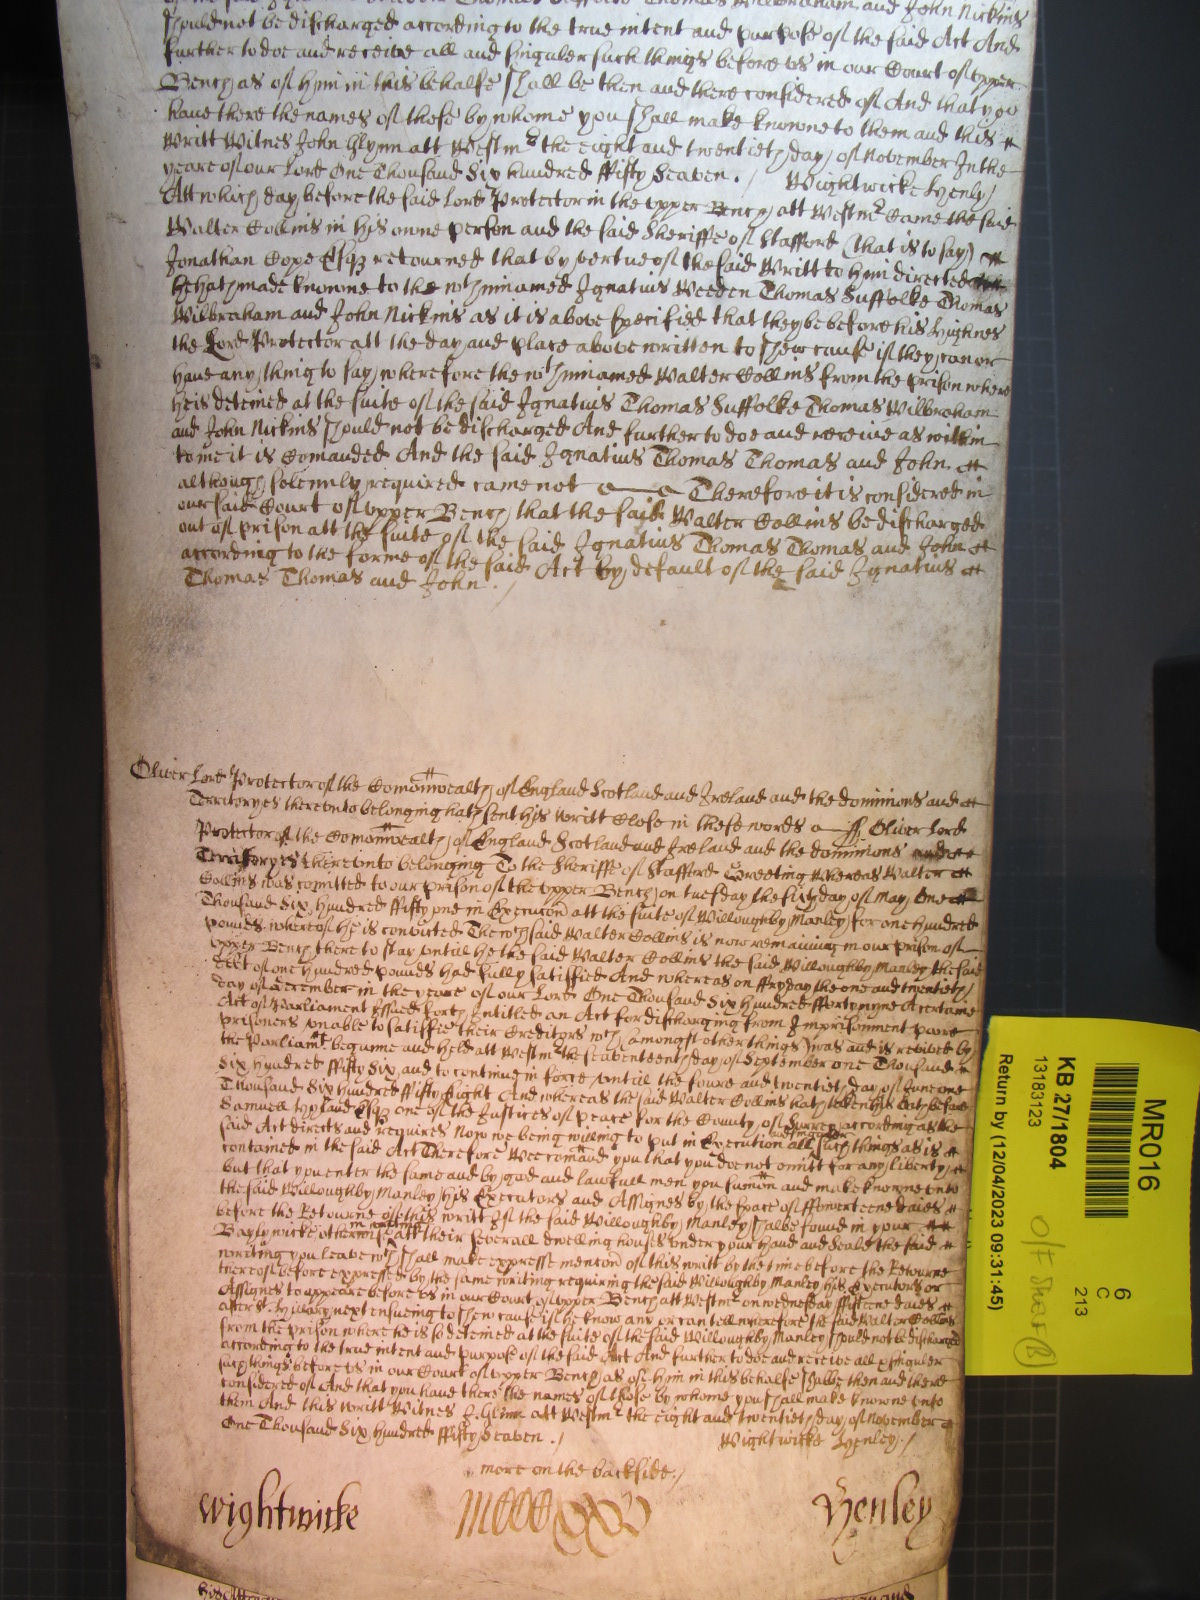 Thomas Wilbraham and John Nickins
should not be discharged according to the true intent and purpose of the said Act And
further to doe and receive all and singuler such things before us in our Court of upper
Bench as of him in this behalfe shall be then and there considered of And that you
have there the names of those by whome you shall make knowne to them and this
writt Witnes John Glynn att Westmr the eight and twentieth day of November In the
yeare of our Lord One Thousand Six hundred ffifty Seaven . / Wightwicke Henly /
Att which day before the said Lord Protector in the upper Bench att Westmr Came the said
Walter Collins in his owne person and the said Sheriffe of Stafford (that is to say)
Jonathan Cope Esqr retourned that by vertue of the said Writt to him directed
he hath made knowne to the wthinnamed Ignatius Weeden Thomas Suffolke Thomas
Wilbraham and John Nickins as it is above specified that they be before his Highnes
the Lord Protector att the day and place above written to shew cause if they can or
have any thing to say wherefore the wthinnamed Walter Collins from the prison where
he is deteined at the suite of the said Ignatius Thomas Suffolke Thomas Wilbraham
and John Nickins should not be discharged And further to doe and receive as within
to me it is Comanded And the said Ignatius Thomas Thomas and John
although solemnly required came not Therefore it is considered in
our said Court of upper Bench that the said Walter Collins be discharged
out of prison att the suite of the said Ignatius Thomas Thomas and John
according to the forme of the said Act by default of the said Ignatius
Thomas Thomas and John . /
Oliver Lord Protector of the Comonwealth of England Scotland and Ireland and the dominions and
Territoryes thereunto belonging hath sent his writt Close in these words ss. Oliver Lord
Protector of the Comonwealth of England Scotland and Ireland and the dominions and
Territoryes thereunto belonging To the Sheriffe of Stafford Greeting Whereas Walter
Collins was comitted to our prison of the upper Bench on tuesday the sixth day of May One
Thousand Six hundred ffifty one in Execucon att the suite of Willoughby Manley for one hundred
pounds whereof he is convicted The wch said Walter Collins is now remaining in our prison of
upper Bench there to stay untill he the said Walter Collins the said Willoughby Manley the said
debt of one hundred pounds had fully satisfied And whereas on ffryday the one and twentieth
day of December in the yeare of our Lord One Thousand Six hundred fforty nyne A certaine
Act of Parliament issued forth Intitled an Act for discharging from Imprisonment poore
prisoners unable to satisfie their Creditors wch (amongst other things) was and is revived by
the Parliamt begunne and held att Westmr the seaventeenth day of September one Thousand
Six hundred ffifty Six and to continue in force untill the foure and twentieth day of June one
Thousand Six hundred ffifty Eight And whereas the said Walter Collins hath taken his Oath before
Samuell Hyland Esqr one of the Justices of peace for the County of Surrey according as the
said Act directs and requires Now we being willing to put in Execution all and singuler such things as is
contained in the said Act Therefore Wee comaund you that you doe not omitt for any liberty
but that you enter the same and by good and lawfull men you sumon and make knowne unto
the said Willoughby Manley his Executors and Assignes by the space of ffowerteene daies
before the Retourne of this writt If the said Willoughby Manley shalbe found in your
Baylywicke otherwise in writing att their severall dwelling houses under your hand and Seale the said
writing you leave wch shall make expresse mencon of this writt by the time before the Retourne
thereof before expressed by the same writing requiring the said Willoughby Manley his Executors or
Assignes to appeare before us in our Court of upper Bench att Westmr on wednesday ffifteene daies
after St. Hillary next ensueing to shew cause if he know any or can tell wherefore the said Walter Collins
from the prison where he is so deteined at the suite of the said Willoughby Manley should not be discharged
according to the true intent and purpose of the said Act And further to doe and receive all & singuler
such things before us in our Court of upper Bench as of him in this behalfe shalbe then and there
considered of And that you have there the names of those by whome you shall make knowne unto
them And this Writt Witnes J. Glinn att Westmr the eight and twentieth day of November
One Thousand Six hundred ffifty Seaven . / Wightwicke Henley . /
more on the backside /
Wightwicke Henley
MR016
6
C
213
KB 27/1804
13183123
Return by (12/04/2023 09:31:45)